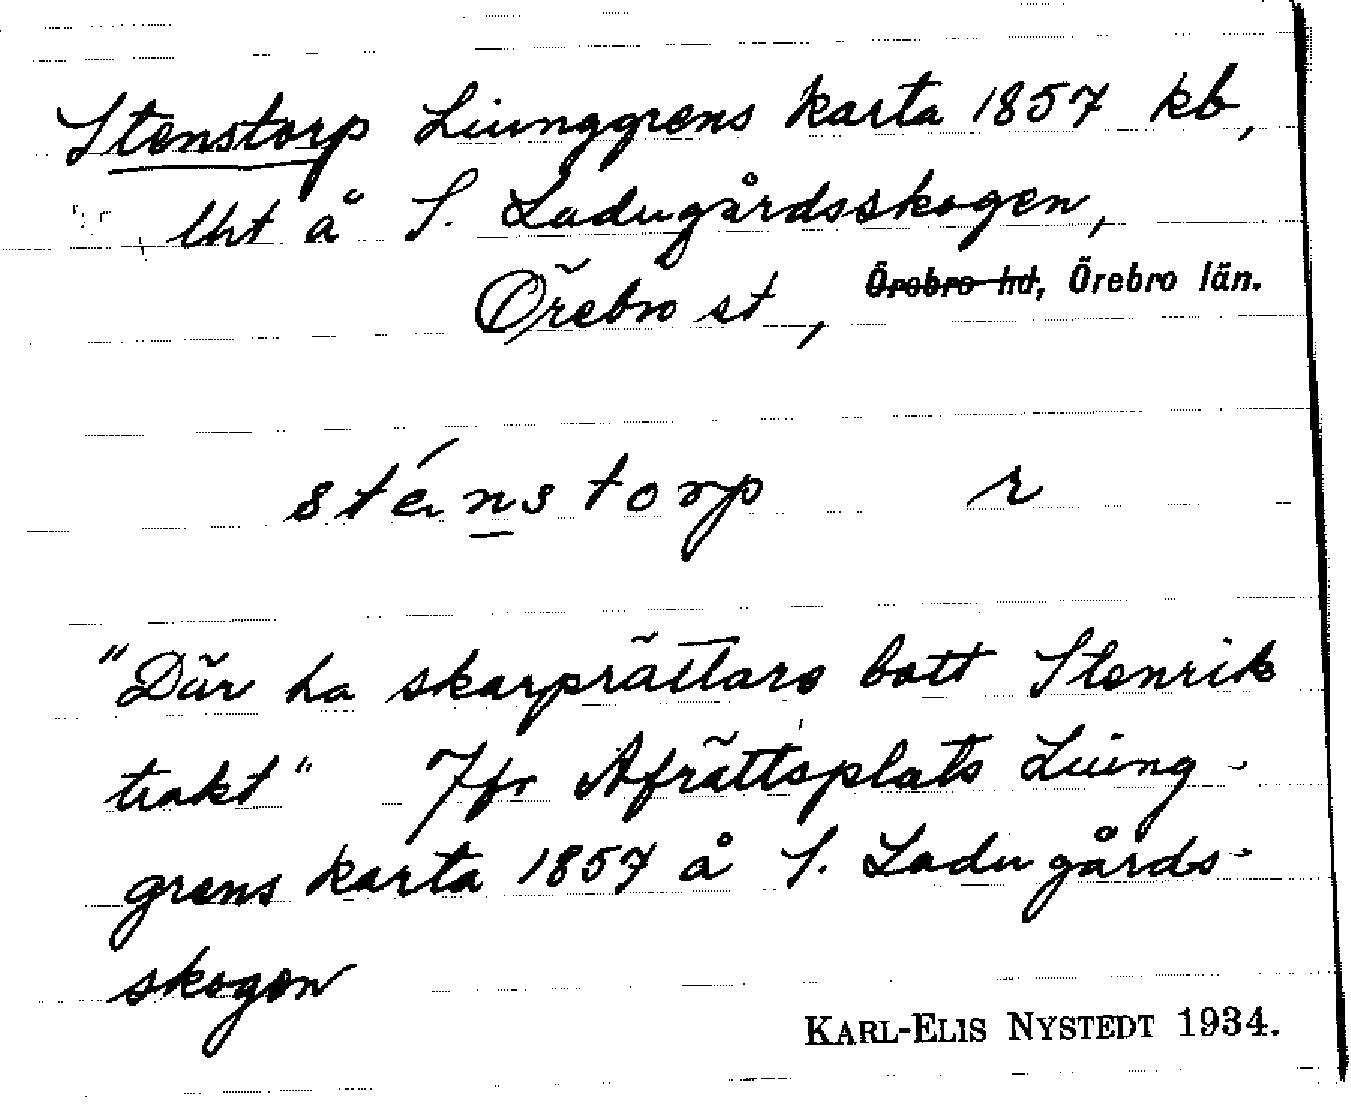 Stenstorp Liunggrens karta 1857 kb,
lht å S. Ladugårdsskogen,
Örebro st, Örebro hd, Örebro län.
sténstorp r
"Där ha skarprättare bott Stenrik
trakt" Jfr Afrättsplats Liung-
grens karta 1857 å S. Ladugårds-
skogen
KARL-ELIS NYSTEDT 1934.